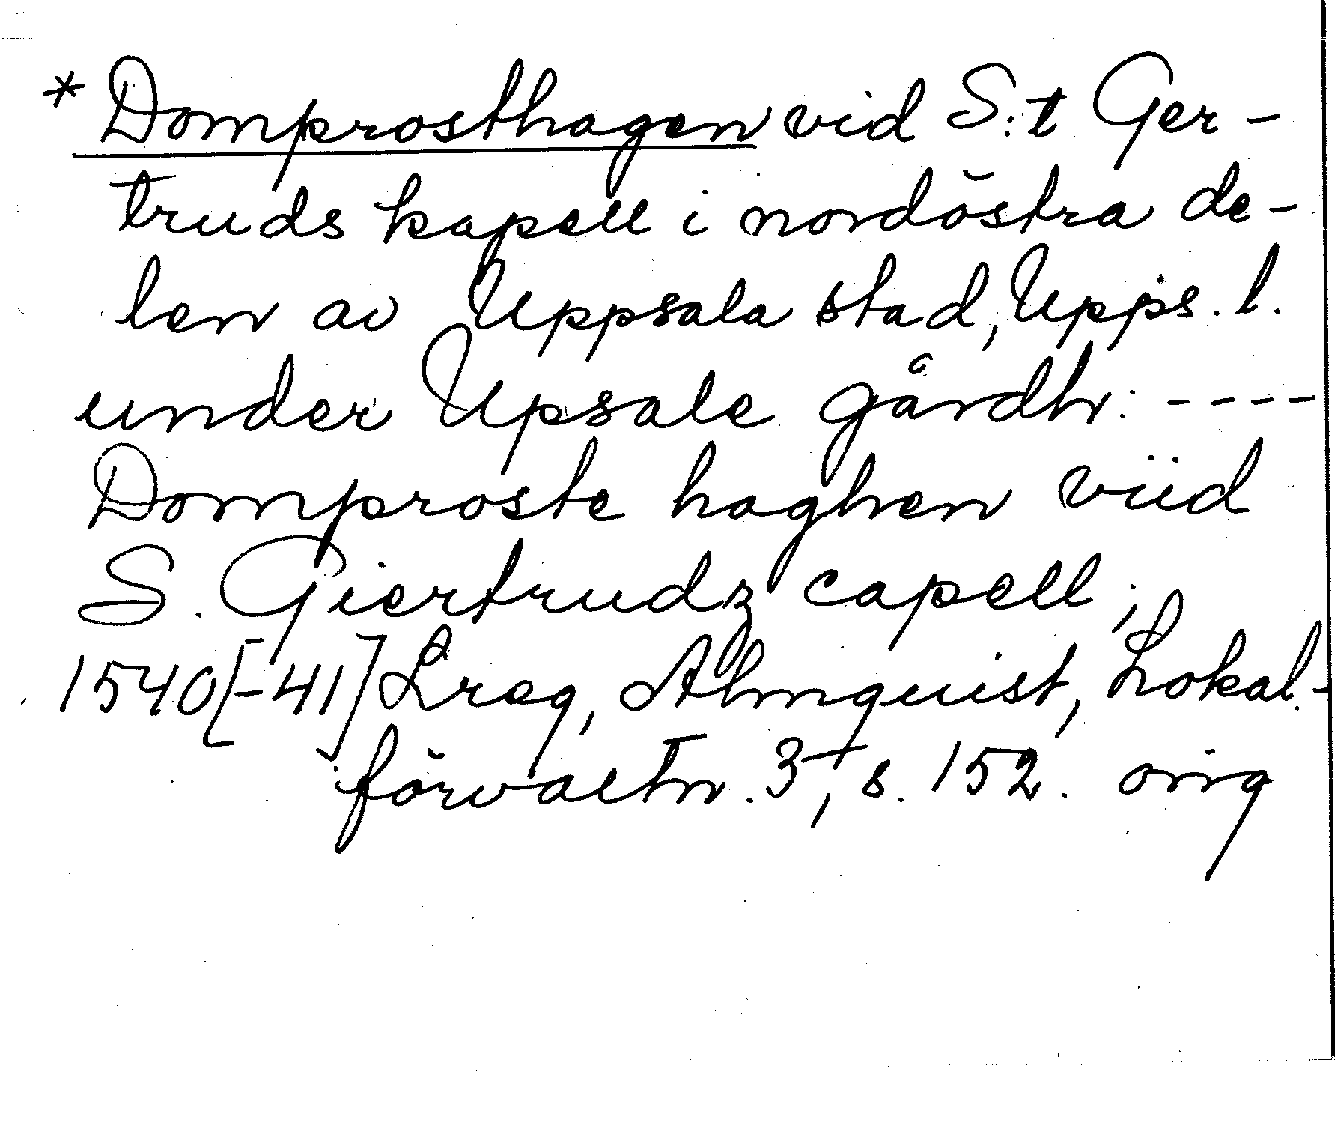 * Domprosthagen vid S:t Ger-
truds kapell i nordöstra de-
len av Uppsala stad, Upps. l.
under Upsale gårdh: ----
Domproste haghen viid
S. Giertrudz capell;
1540[-41] Lreg, Almquist, Lokal-
förvaltn. 3, s. 152. orig